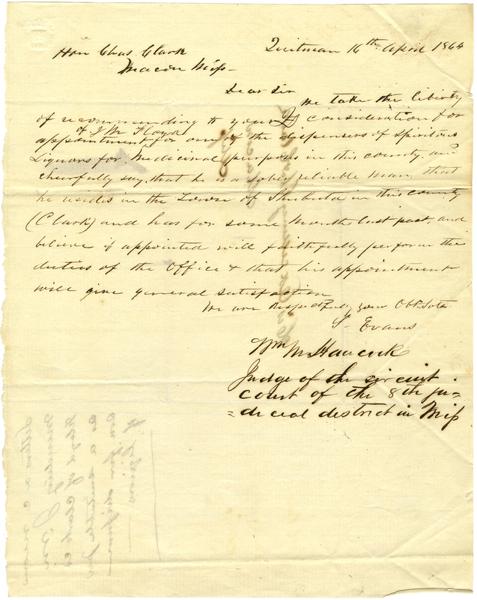 Quitman 16th April 1864
Hon Chas. Clark
Macon Miss
Dear Sir
We take the liberty
of recommending to your consideration for
of J M Floyd
appointment, for one of the dispensers of Spiritous
Liquors for Medicinal purposes in this county, and
cheerfully say, that he is a sober reliable man, that
he resides in the Town of Shubuta in this county
(Clark) and has for some months last past, and
believe if appointed will faithfully perform the
duties of the Office & that his appointment
will give general satisfaction
We are Respectfully your Obt Svts
S. Evans
Wm M Hancock
Judge of the circuit
court of the 8th ju-
-dicial district in Miss